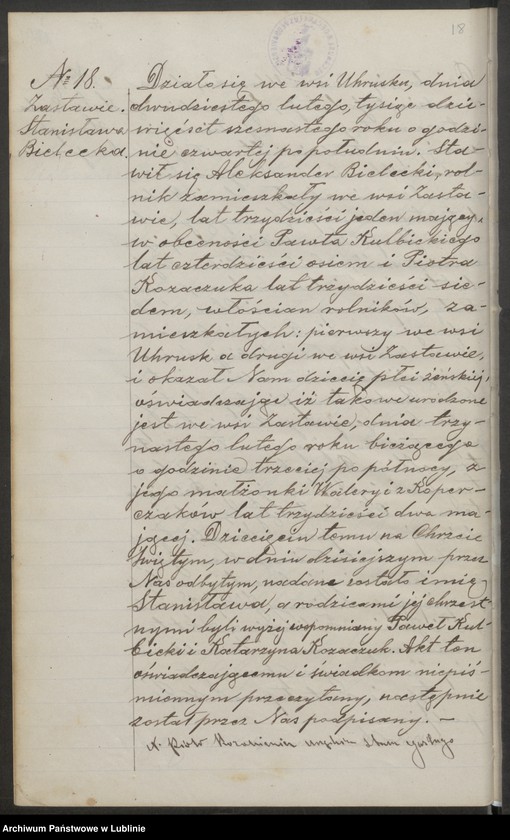 18
№ 18.
Zastawie.
Stanisława
Bielecka.
Działo się we wsi Uhrusku, dnia
dwudziestego lutego, tysiąc dzie-
więćset szesnastego roku o godzi-
nie czwartej po południu. Sta-
wił się Aleksander Bielecki, rol-
nik zamieszkały we wsi Zasta-
wie, lat trzydzieści jeden mający,
w obecności Pawła Kulbickiego
lat czterdzieści osiem i Piotra
Kozaczuka lat trzydzieści sie-
dem, włościan rolników, za-
mieszkałych: pierwszy we wsi
Uhrusk a drugi we wsi Zastawie,
i okazał Nam dziecię płci żeńskiej,
oświadczając iż takowe urodzone
jest we wsi Zastawie, dnia trzy-
nastego lutego roku bieżącego
o godzinie trzeciej po północy, z
jego małżonki Waleryi z Koper-
czaków lat trzydzieści dwa ma-
jącej. Dziecięciu temu na Chrzcie
Świętym, w dniu dzisiejszym przez
Nas odbytym, nadane zostało imię
Stanisława, a rodzicami jej chrzest-
nymi byli wyżej wspomniany Paweł Kul-
bicki i Katarzyna Kozaczuk. Akt ten
oświadczającemu i świadkom niepiś-
miennym przeczytany, następnie
został przez Nas podpisany. —
Archiwum Państwowe w Lublinie